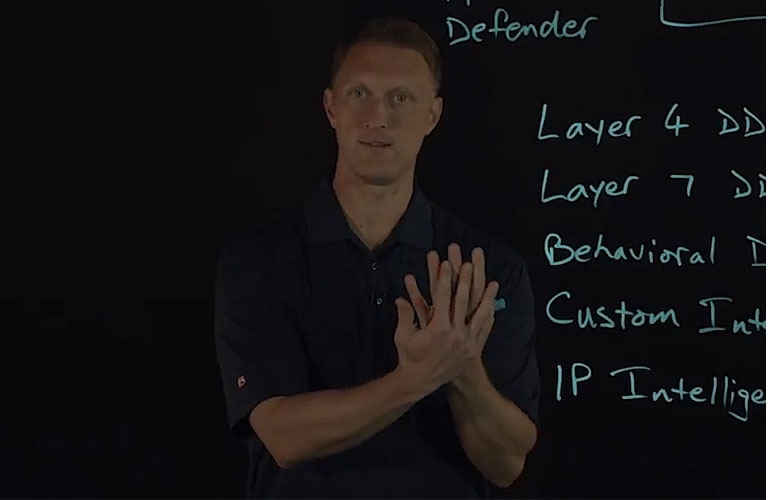 Defender
Layer 4 DD
Layer 7 DD
Behavioral D
Custom Inte
IP Intellige